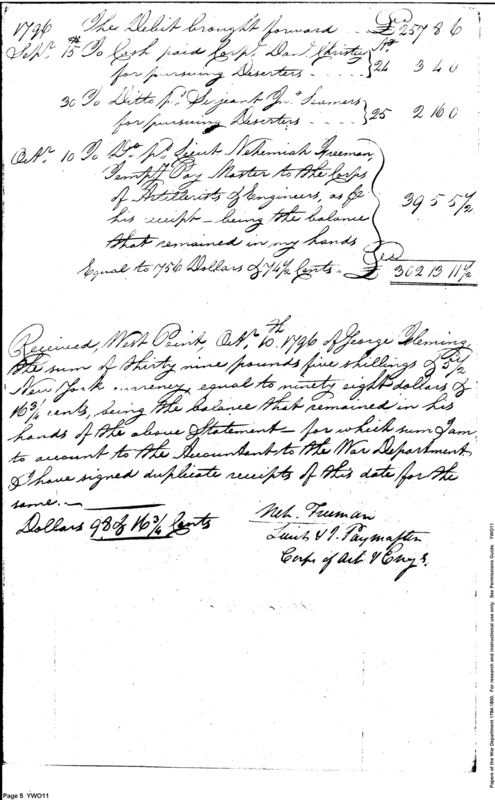 1796 The Debit brought forward - - - £ 257 8 6
Septr. 15th To Cash paid Corpl. Danl. Christie No.
for pursuing Deserters - - - - } 24 3 4 0
30 To Ditto pd. Serjeant Jno. Seamers
for pursuing Deserters - - - - } 25 2 16 0
Octr. 10 To Do. pd. Lieut Nehemiah Freeman
Tempy. Pay Master to the Corps
of Artillerists & Engineers, as
his receipt - being the balance
that remained in my hands } 39 5 5½
Equal to 756 Dollars & 74½ Cents - £ 302 13 11½
Received, West Point, Octr. 10th. 1796 of George Fleming
the sum of thirty nine pounds five shillings & 5½
New York currency equal to ninety eight dollars &
16¾ cents, being the balance that remained in his
hands of the above Statement - for which sum I am
to account to the Accountant to the War Department
& I have signed duplicate receipts of this date for the
same. -
Dollars 98 & 16¾ Cents
Neh. Freeman
Lieut & T. Paymaster
Corps of Art & Engrs.
Page 5 YWO11
Papers of the War Department 1784-1800. For research and instructional use only. See Permissions Guide. YWO11